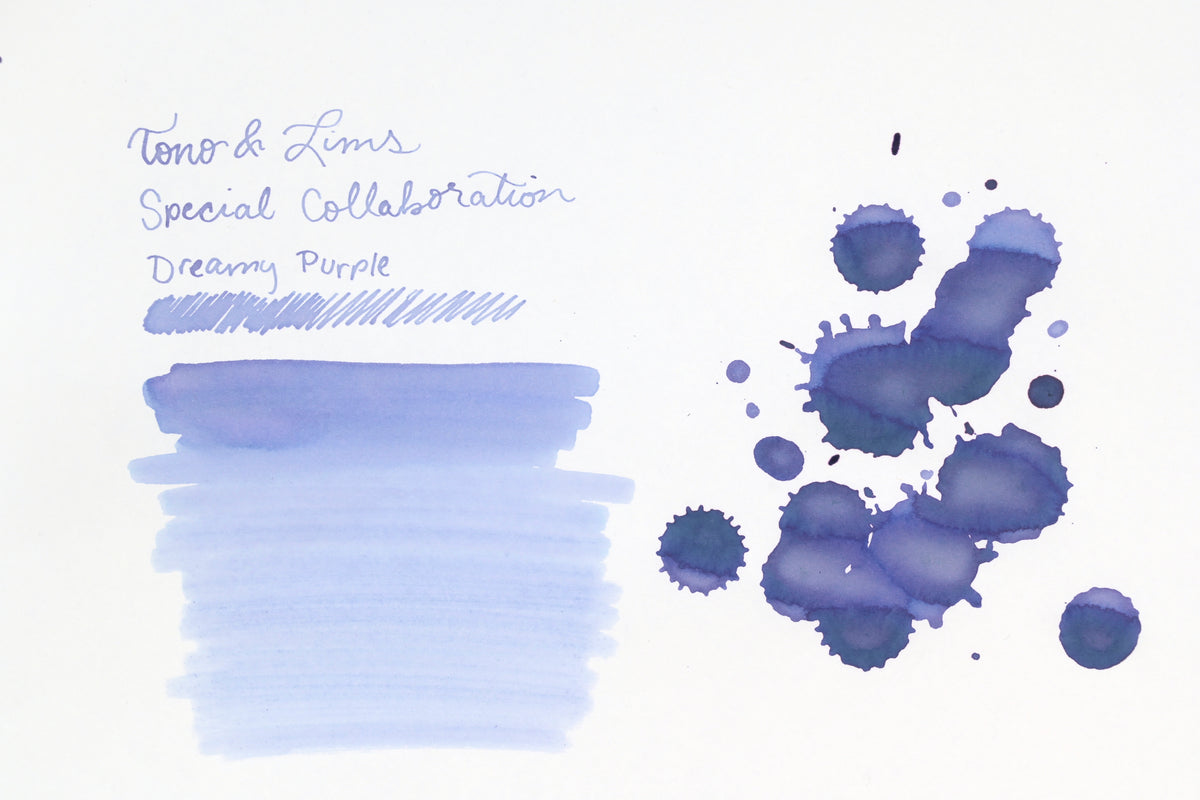 Tono & Lims
Special Collaboration
Dreamy Purple